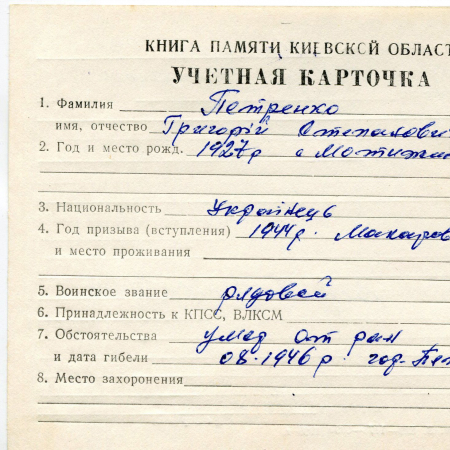 КНИГА ПАМЯТИ КИЕВСКОЙ ОБЛАСТ
УЧЕТНАЯ КАРТОЧКА
1. Фамилия Петренко
имя, отчество Григорій Степанович
2. Год и место рожд. 1927р с Мотижин
3. Национальность українець
4. Год призыва (вступления) 1944р. Макаров
и место проживания
5. Воинское звание рядовой
6. Принадлежность к КПСС, ВЛКСМ
7. Обстоятельства умер от ран
и дата гибели 08.1946р
8. Место захоронения